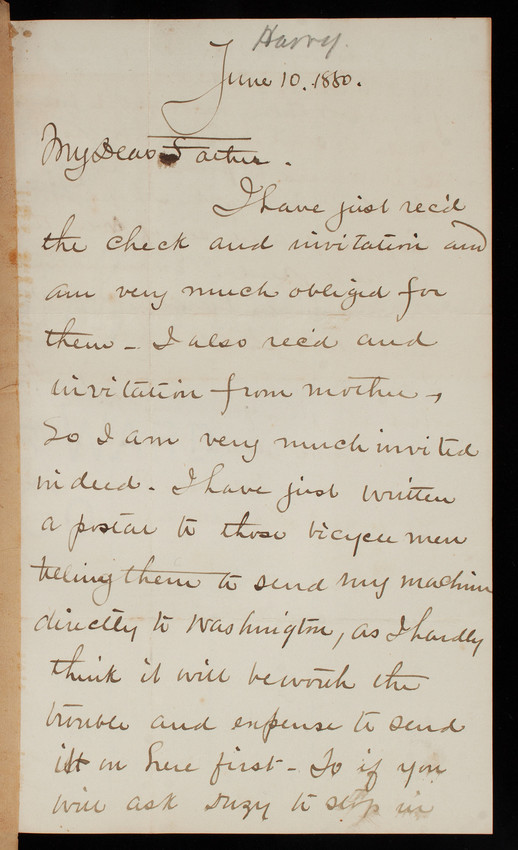 Harry.
June 10. 1880.
My Dear Father.
I have just rec'd
the check and invitation and
am very much obliged for
them - I also rec'd and
invitation from mother,
So I am very much invited
indeed. I have just written
a postal to those bicycle men
telling them to send my machine
directly to Washington, as I hardly
think it will be worth the
trouble and expense to send
it on here first - So if you
will ask Suzy to stop in